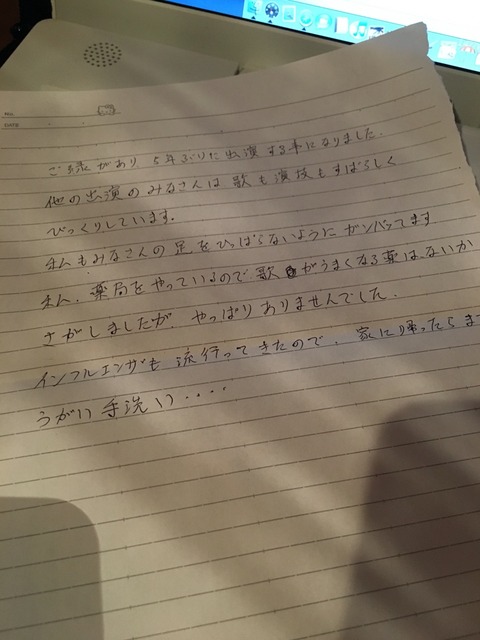 NO.
DATE
ご縁があり 5年ぶりに出演する事になりました.
他の出演のみなさんは 歌も演技もすばらしく
びっくりしています.
私もみなさんの足をひっぱらないように ガンバッてます
私、薬局をやっているので歌がうまくなる薬はないか
さがしましたが、やっぱりありませんでした.
インフルエンザも流行ってきたので、家に帰ったらま
うがい 手洗い・・・・